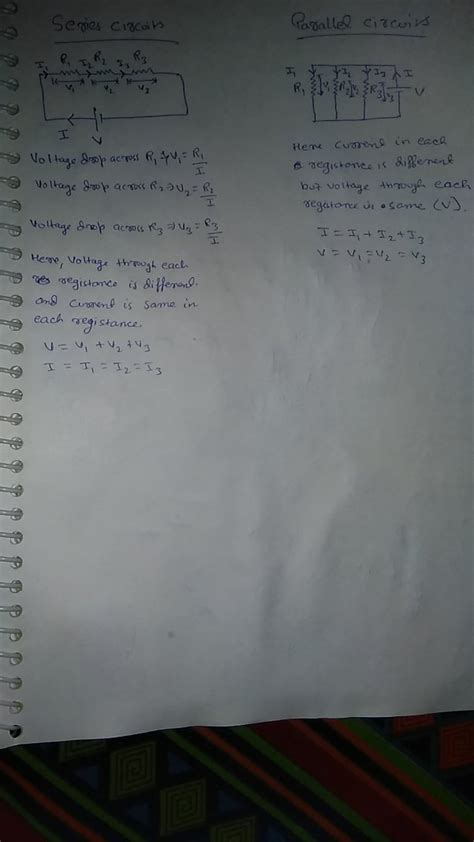 Series circuits
I₁ R₁ I₂ R₂ I₃ R₃
V₁ V₂ V₃
I
V
Voltage drop across R₁ ⇒ V₁ = R₁/I
Voltage drop across R₂ ⇒ V₂ = R₂/I
Voltage drop across R₃ ⇒ V₃ = R₃/I
Here, Voltage through each
registance is different
and current is same in
each registance.
V = V₁ + V₂ + V₃
I = I₁ = I₂ = I₃
Parallel circuirs
I₁ I₂ I₃ I
R₁ V₁ R₂ V₂ R₃ V₃ V
Here current in each
registance is different
but voltage through each
registance is same (V).
I = I₁ + I₂ + I₃
V = V₁ = V₂ = V₃